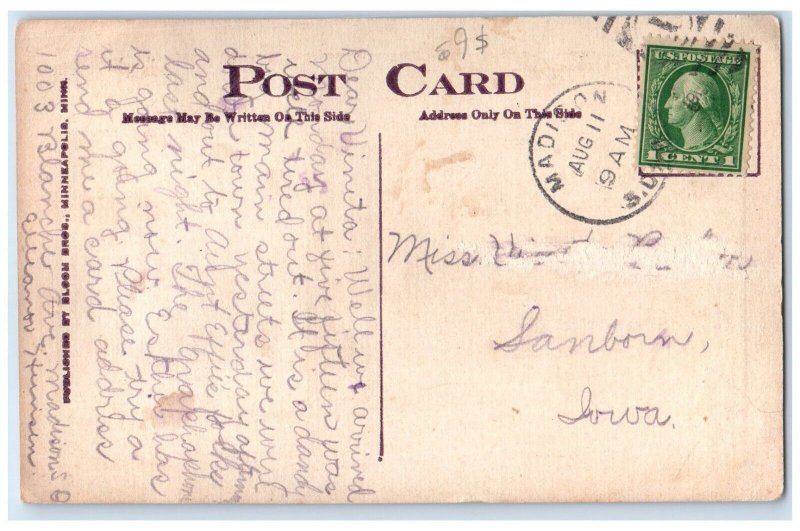 59$
POST CARD
Message May Be Written On This Side
Address Only On This Side
U.S. POSTAGE
1 CENT 1
MADISON
AUG 11 2
9 AM
S.DAK.
Dear Vinita: Well we arrived
Monday at five fifteen was
tired out. It is a dandy
main streets we were
town yesterday
and out to Aunt Effie's place
last night. The Graphaphone
is going now Esther has
it going. Please try a
send me a card address
1003 Blanche Ave, Madison S D
Eleanor
PUBLISHED BY BLOOM BROS., MINNEAPOLIS, MINN.
Miss
Sanborn,
Iowa.